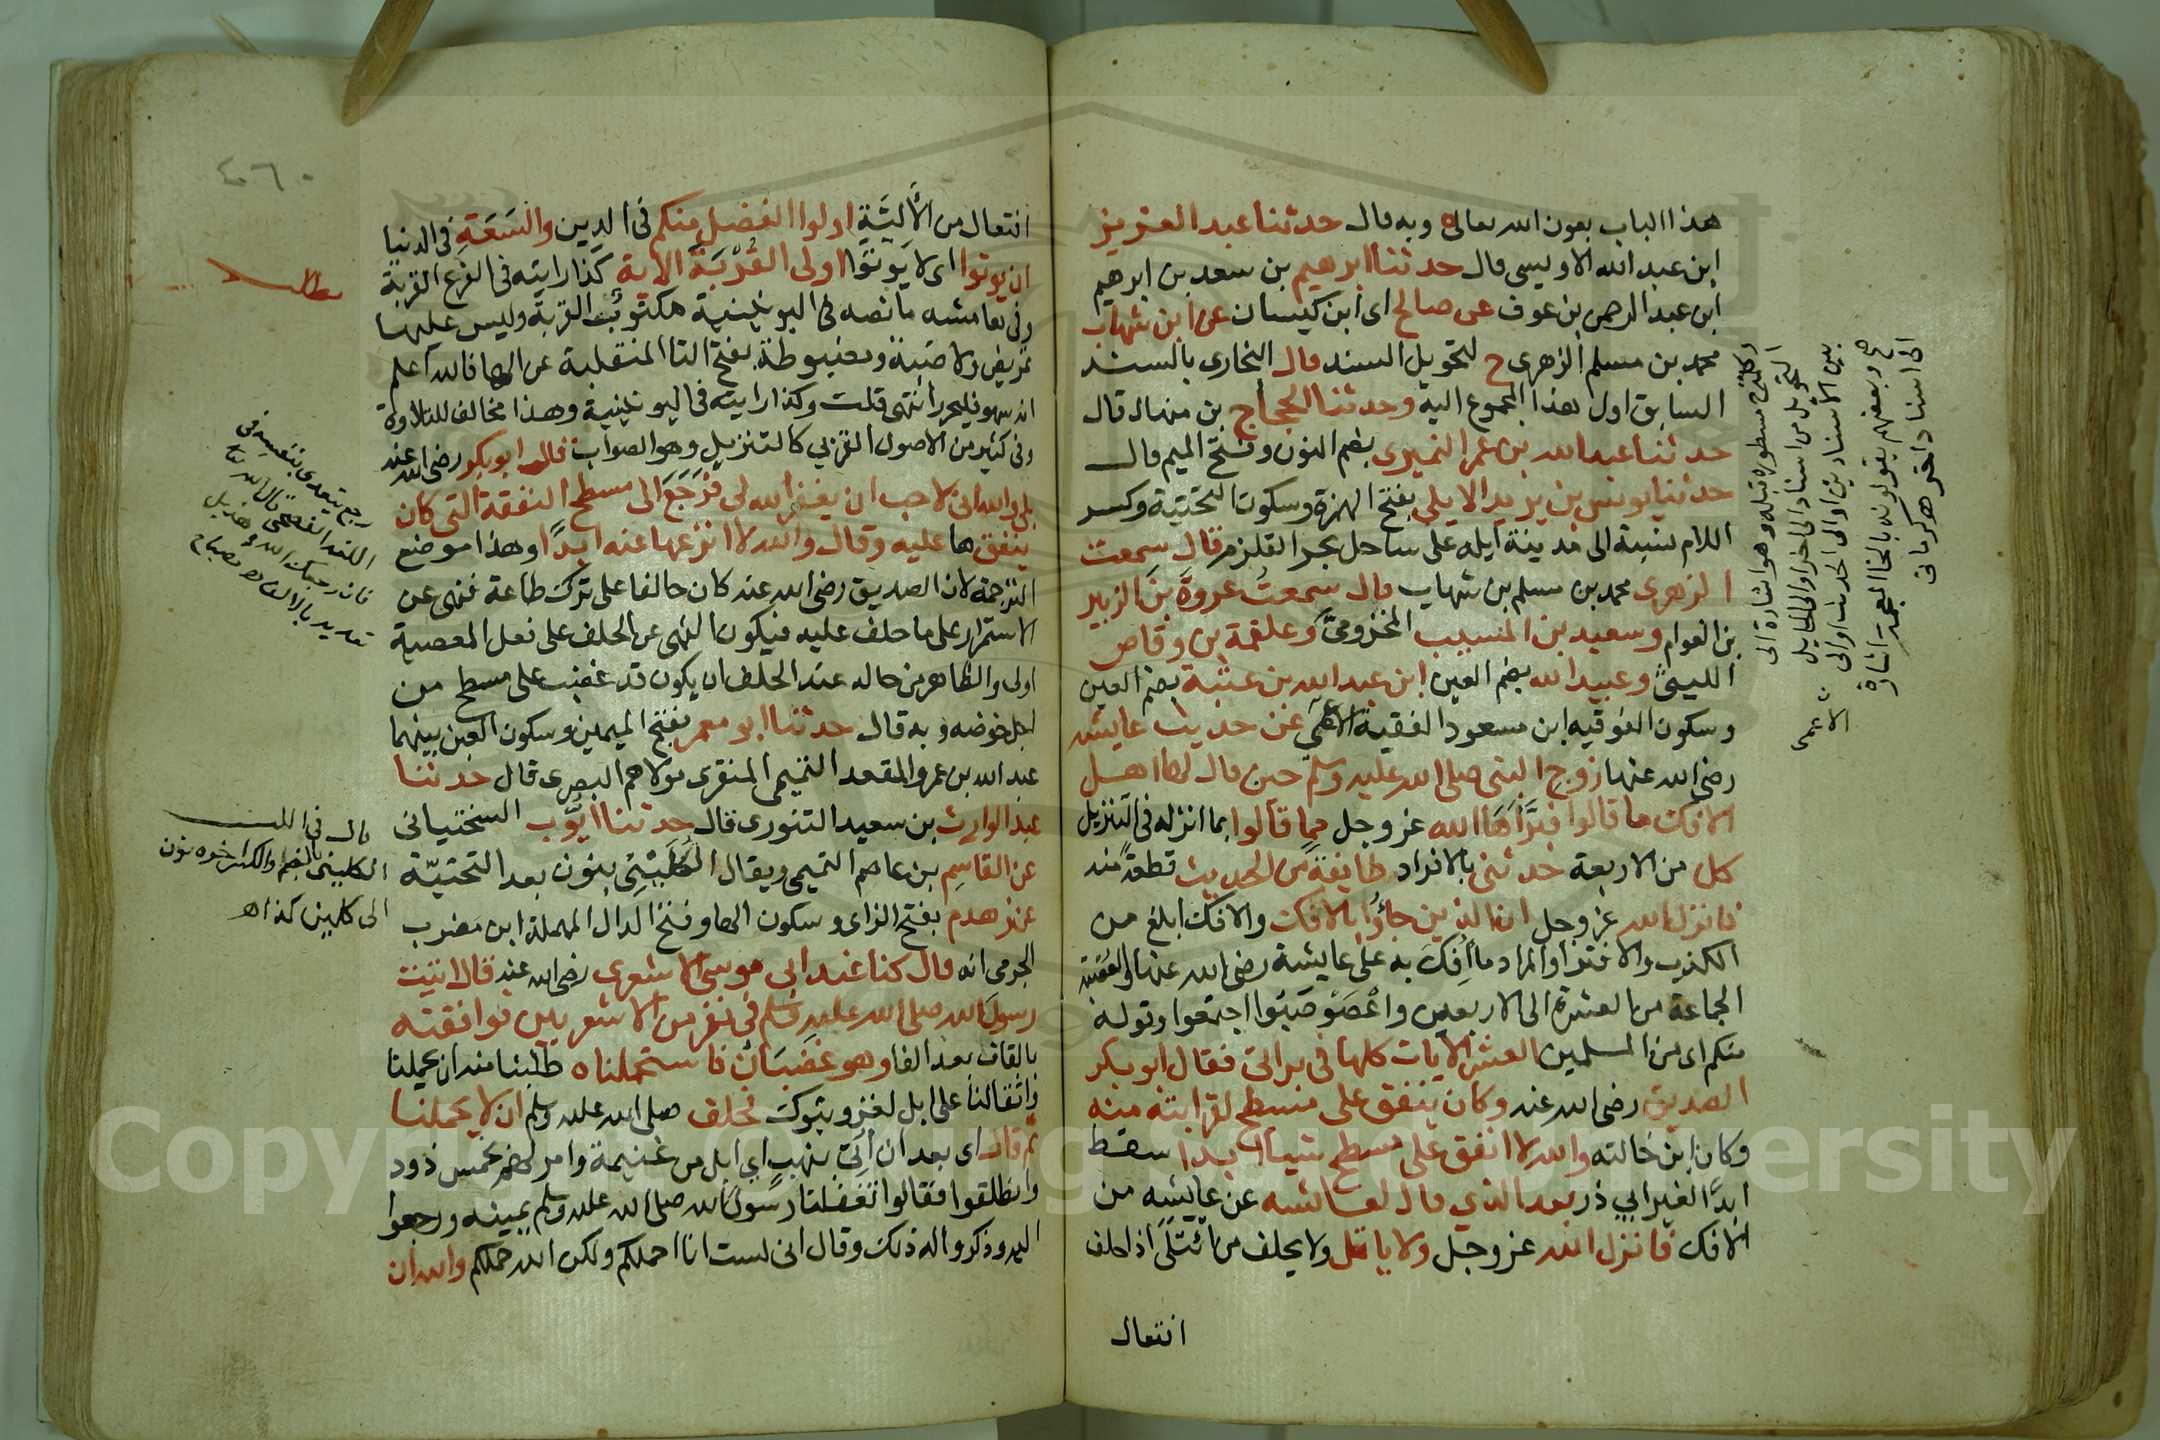 هذا الباب بعون الله تعالى وبه قال حدثنا عبد العزيز
ابن عبد الله الاويسى قال حدثنا ابرهيم بن سعد بن ابرهيم
ابن عبد الرحمن بن عوف عن صالح اى ابن كيسان عن ابن شهاب
محمد بن مسلم الزهرى ح لتحويل السند قال البخارى بالسند
السابق اول هذا المجموع اليه وحدثنا الحجاج بن منهال قال
حدثنا عبد الله بن عمر النميرى بضم النون وفتح الميم قال
حدثنا يونس بن يزيد الايلى بفتح الهمزة وسكون التحتية وكسر
اللام نسبة الى مدينة ايله على ساحل بحر القلزم قال سمعت
الزهرى محمد بن مسلم بن شهاب قال سمعت عروة بن الزبير
بن العوام وسعيد بن المسيب المخزومى وعلقمة بن وقاص
الليثى وعبيد الله بضم العين ابن عبد الله بن عتبة بضم العين
وسكون الفوقيه ابن مسعود الفقية الاعمى عن حديث عايشة
رضى الله عنها زوج النبى صلى الله عليه وسلم حين قال لها اهل
الافك ما قالوا فبرأها الله عز وجل مما قالوا بما انزله فى التنزيل
كل من الاربعة حدثنى بالافراد طايفة من الحديث قطعة منه
فانزل الله عز وجل ان الذين جاؤا بالافك والافك ابلغ من
الكذب والافترا والمراد ما أفك به على عايشة رضى الله عنها والعصبة
الجماعة من العشرة الى الاربعين واعصوصبوا اجتمعوا وقوله
منكم اى من المسلمين العشر الآيات كلها فى براتى فقال ابو بكر
الصديق رضى الله عنه وكان ينفق على مسطح لقرابته منه
وكان ابن خالته والله لا انفق على مسطح شيئا ابدا سقط
ابدًا لغير ابي ذر بعد الذي قال لعائشه عن عايشه من
الافك فانزل الله عز وجل ولا ياتل ولا يحلف من ائتلى اذا حلف
انتعال
وكلمة ح مسطوره قبله وهو اشارة الى
التحويل من اسناد الى اخر او الى الحايل
بين الاسنادين او الى الحديث او الى
صح وبعضهم يقولونه بالخا المعجمة اشارة
الى اسناد اخر ه كرمانى
الاعمى
٤٦٠
انتعال من الألية اولوا الفضل منكم فى الدين والسعة فى الدنيا
ان يوتوا اى لا يوتوا اولى القربة الاية كذا رايته فى الفرع القربة
وفى هامشه ما نصه فى اليونينية مكتوب القربة وليس عليها
تمريض ولا ضبة ومضبوطة بفتح التا المنقلبة عن الها فالله اعلم
انه سهو فليحرر انتهى قلت وكذا رايته فى اليونينية وهذا مخالف للتلاوة
وفى كثير من الاصول القربى كالتنزيل وهو الصواب قال ابو بكر رضى الله عنه
بلى والله انى لاحب ان يغفر الله لى فرجع الى مسطح النفقة التى كان
ينفقها عليه وقال والله لا انزعها عنه ابدًا وهذا موضع
الترجمة لان الصديق رضى الله عنه كان حالفا على ترك طاعة فنهى عن
الاستمرار على ما حلف عليه فيكون النهى عن الحلف على فعل المعصية
اولى والظاهر من حاله عند الحلف ان يكون قد غضب على مسطح من
اجل خوضه وبه قال حدثنا ابو معمر بفتح الميمين وسكون العين بينهما
عبد الله بن عمرو المقعد التميمى المنقرى مولاهم البصرى قال حدثنا
عبد الوارث بن سعيد التنورى قال حدثنا ايوب السختيانى
عن القاسم بن عاصم التميمى ويقال الكلينى بنون بعد التحتية
عن زهدم بفتح الزاى وسكون الها وفتح الدال المهملة ابن مضرب
الجرمى انه قال كنا عند ابى موسى الاشعرى رضى الله عنه قال اتيت
رسول الله صلى الله عليه وسلم فى نفر من الاشعريين فوافقته
بالقاف بعد الفا وهو غضبان فاستحملناه طلبنا منه ان يحملنا
واثقالنا على ابل لغزوة تبوك فحلف صلى الله عليه وسلم ان لا يحملنا
ثم قال اى بعد ان أتى بنهب اي ابل من غنيمة وامر لهم بخمس ذود
وانطلقوا فقالوا تغفلنا رسول الله صلى الله عليه وسلم يمينه ورجعوا
اليه وذكروا له ذلك وقال انى لست انا احملكم ولكن الله حملكم والله ان
مطلب
رجع يتعدى بنفسه فى
اللغة الفصحى قال الله تعالى
فان رجعك الله وهذيل
تعديه بالالف ه مصباح
قال فى اللب
الكلينى بالضم والكسر اخره نون
الى كلين كذا ه
Copyright © King Saud University